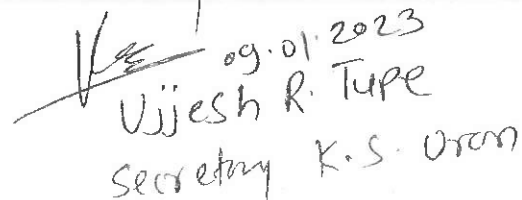 09.01.2023
Ujjesh R. Tupe
Secretary K.S. Uran